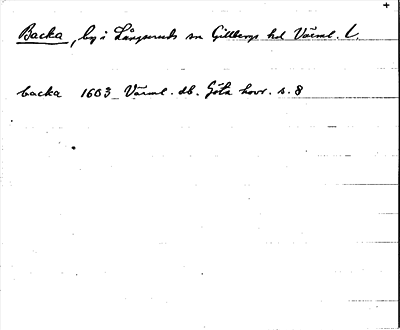 +
Backa, by i Långseruds sn Gillbergs hd Värml. l.
backa 1603 Värml. db. Göta hovr. s. 8